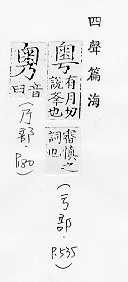 四聲篇海
粵
有月切
說也
審慎之
詞也
(亏部·P.535)
音曰
(部 P.80)